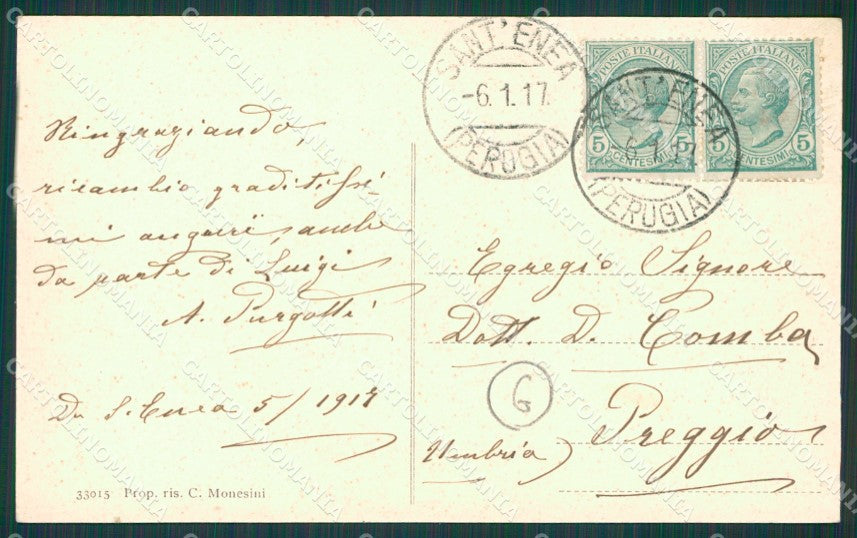 Ringraziando,
ricambio graditissi-
mi auguri, anche
da parte di Luigi
A. Purgotti
Da S. Enea 5/1917
33015 Prop. ris. C. Monesini
SANT'ENEA
-6.1.17.
(PERUGIA)
POSTE ITALIANE
5 CENTESIMI 5
POSTE ITALIANE
5 CENTESIMI 5
SANT'ENEA
6.1.17
(PERUGIA)
Egregio Signore
Dott. D. Comba
G
Preggio
(Umbria)
CARTOLINOMANIA